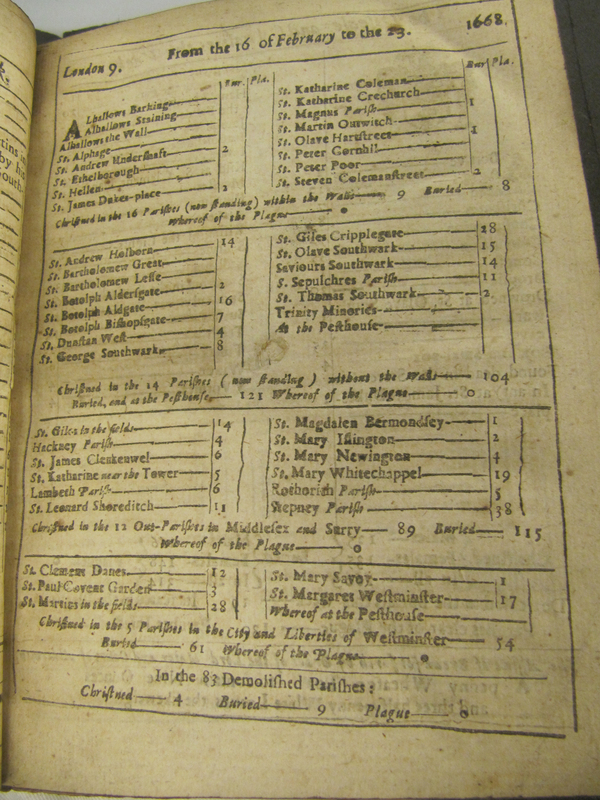 London 9.
From the 16 of February to the 23.
1668.
Bur. Pla.
Alhallows Barking
Alhallows Staining
Alhallows the Wall
St. Alphage
St. Andrew Undershaft 2
St. Ethelborough
St. Hellen
St. James Dukes-place 2
Bur Pla.
St. Katharine Coleman
St. Katharine Crechurch
St. Magnus Parish 1
St. Martin Outwitch
St. Olave Hartstreet 1
St. Peter Cornhil
St. Peter Poor
St. Steven Colemanstreet 2
Christned in the 16 Parishes (now standing) within the Walls 9 Buried 8
Whereof of the Plague 0
St. Andrew Holborn 14
St. Bartholomew Great
St. Bartholomew Lesse
St. Botolph Aldersgate 2
St. Botolph Aldgate 16
St. Botolph Bishopsgate 7
St. Dunstan West 4
St. George Southwark 8
St. Giles Cripplegate 28
St. Olave Southwark 15
Saviours Southwark 14
S. Sepulchres Parish 11
St. Thomas Southwark 2
Trinity Minories
At the Pesthouse
Christned in the 14 Parishes (now standing) without the Walls 104
Buried, and at the Pesthouse, 121 Whereof of the Plague 0
St. Giles in the fields 14
Hackney Parish 4
St. James Clenkenwel 6
St. Katharine near the Tower 5
Lambeth Parish 6
St. Leonard Shoreditch 11
St. Magdalen Bermondsey 1
St. Mary Islington 2
St. Mary Newington 4
St. Mary Whitechappel 19
Rothorith Parish 5
Stepney Parish 38
Christned in the 12 Out-Parishes in Middlesex and Surry 89 Buried 115
Whereof of the Plague 0
St. Clement Danes 12
St. Paul Covent Garden 3
St. Martins in the fields 28
St. Mary Savoy 1
St. Margaret Westminster 17
Whereof at the Pesthouse
Christned in the 5 Parishes in the City and Liberties of Westminster 54
Buried 61 Whereof of the Plague 0
In the 83 Demolished Parishes:
Christned 4 Buried 9 Plague 0